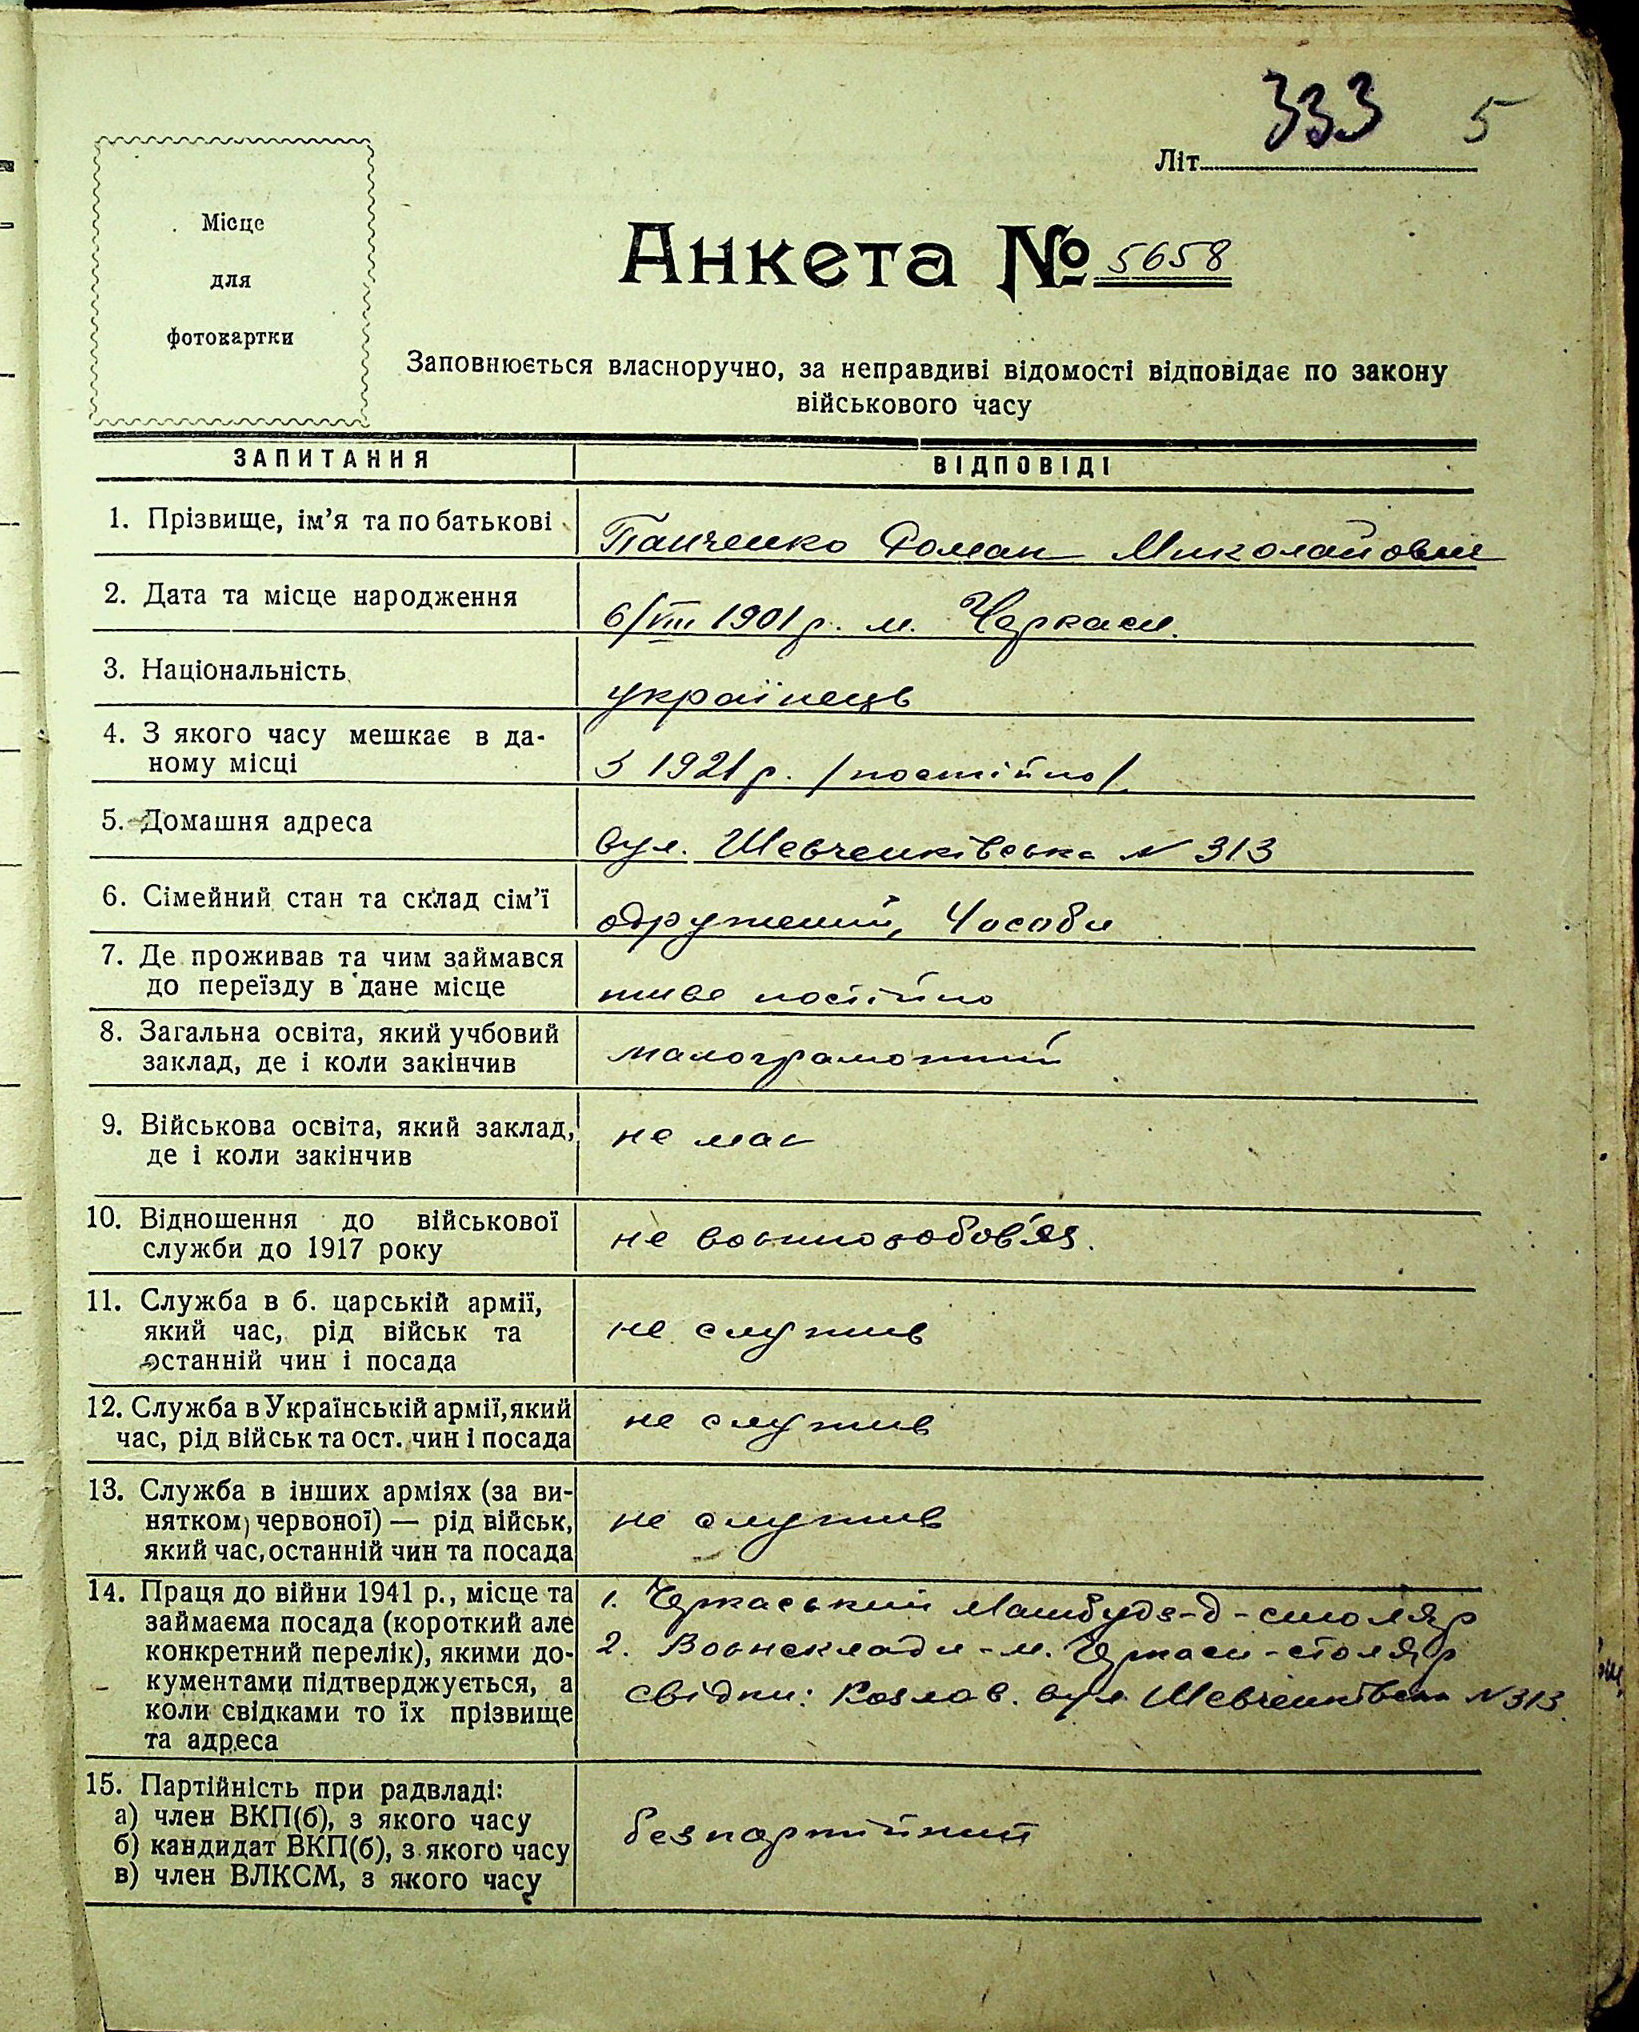 333 5
Літ
Місце
для
фотокартки
Анкета № 5658
Заповнюється власноручно, за неправдиві відомості відповідає по закону
військового часу
ЗАПИТАННЯ ВІДПОВІДІ
1. Прізвище, ім’я та по батькові Панченко Роман Миколайович
2. Дата та місце народження 6/VIII 1901 р. м. Черкаси.
3. Національність українець
4. З якого часу мешкає в да-
ному місці З 1921 р. /постійно/
5. Домашня адреса вул. Шевченківська N 313
6. Сімейний стан та склад сім’ї одружений, 4 особи
7. Де проживав та чим займався
до переїзду в дане місце живе постійно
8. Загальна освіта, який учбовий
заклад, де і коли закінчив малограмотний
9. Військова освіта, який заклад, не має
де і коли закінчив
10. Відношення до військової
служби до 1917 року не воєннозобов’яз.
11. Служба в б. царській армії,
який час, рід військ та не служив
останній чин і посада
12. Служба в Українській армії, який не служив
час, рід військ та ост. чин і посада
13. Служба в інших арміях (за ви-
нятком червоної) — рід військ, не служив
який час, останній чин та посада
14. Праця до війни 1941 р., місце та 1. Черкаський Машбуд з-д - столяр
займаєма посада (короткий але
конкретний перелік), якими до- 2. Воєнсклади - м. Черкаси - столяр
кументами підтверджується, а свідки: Козлов. вул Шевченківська N 313.
коли свідками то їх прізвище
та адреса
15. Партійність при радвладі:
а) член ВКП(б), з якого часу безпартійний
б) кандидат ВКП(б), з якого часу
в) член ВЛКСМ, з якого часу